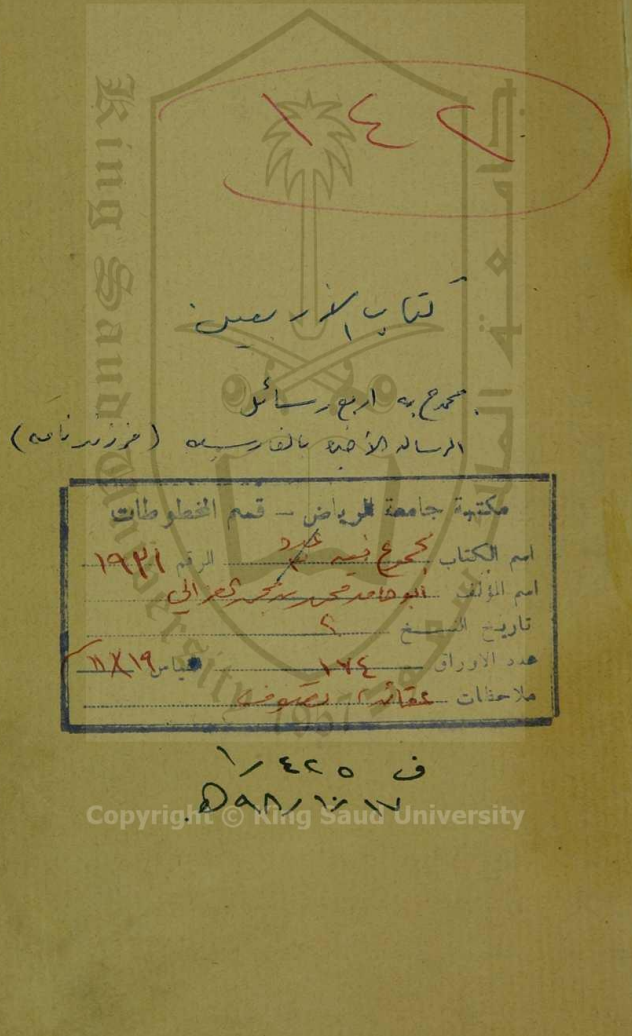 ١٤٢
كتاب الأربعين
مجموع به اربع رسائل
الرسالة الأخيرة بالفارسية (فرزندنامه)
مكتبة جامعة الرياض – قسم المخطوطات
اسم الكتاب مجموع فيه الرقم ١٩٣١
اسم المؤلف أبو حامد محمد بن محمد الغزالي
تاريخ النسخ ؟
عدد الأوراق ١٧٤ قياس ١٩ × ١١
ملاحظات عقائد، تصوف
ف ٤٢٥ / ١
King Saud University
1957
Copyright © King Saud University